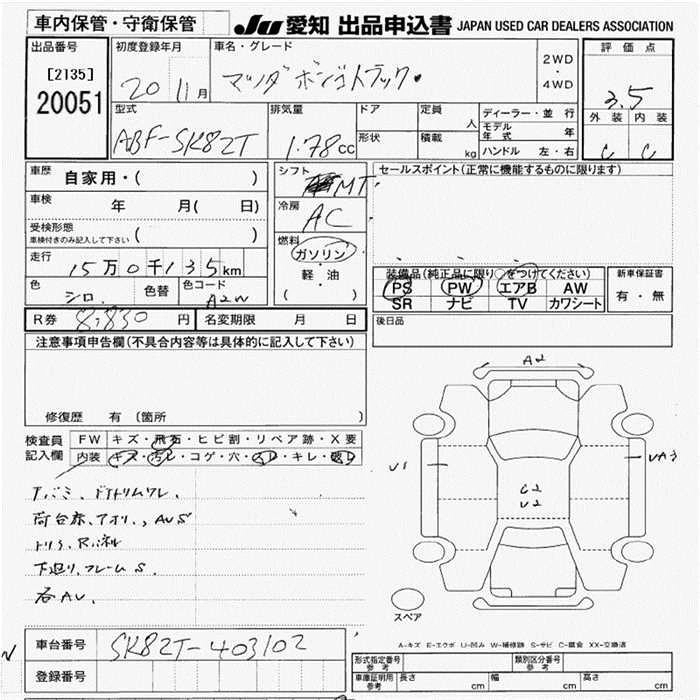 車内保管・守衛保管
JU 愛知 出品申込書 JAPAN USED CAR DEALERS ASSOCIATION
出品番号 [2135] 20051
初度登録年月 20 11月
車名・グレード マツダ ボンゴトラック
2WD・4WD
評価点 3.5
外装 内装
C C
型式 ABF-SK82T
排気量 1.78cc
ドア
形状
定員 人
積載 kg
ディーラー・並行
モデル年式 年
ハンドル 左・右
車歴 自家用・( )
車検 年 月( 日)
受検形態 ( )
車検付きのみ記入して下さい
走行 15万0千135km
色 シロ 色替 色コード A2W
シフト MT
冷房 AC
燃料 ガソリン・軽・油
( )
セールスポイント(正常に機能するものに限ります)
装備品(純正品に限り○をつけてください)
PS PW エアB AW
SR ナビ TV カワシート
新車保証書
有・無
後日品
R券 8,830円 名変期限 月 日
注意事項申告欄(不具合内容等は具体的に記入して下さい)
修復歴 有 (箇所 )
検査員記入欄
FW キズ・飛石・ヒビ割・リペア跡・X要
内装 キズ・汚レ・コゲ・穴・スレ・キレ・
荷台床、アオリ、AUS
トリら、Rパネル
下廻り、フレームS.
各AU、
A2
U1
UA3
C2
U2
スペア
A-キズ E-エクボ U-凹み W-補修跡 S-サビ C-腐食 XX-交換済
車台番号 SK82T-403102
登録番号
形式指定番号 参考
類別区分番号 参考
車庫証明用 参考 長さ cm 幅 cm 高さ cm